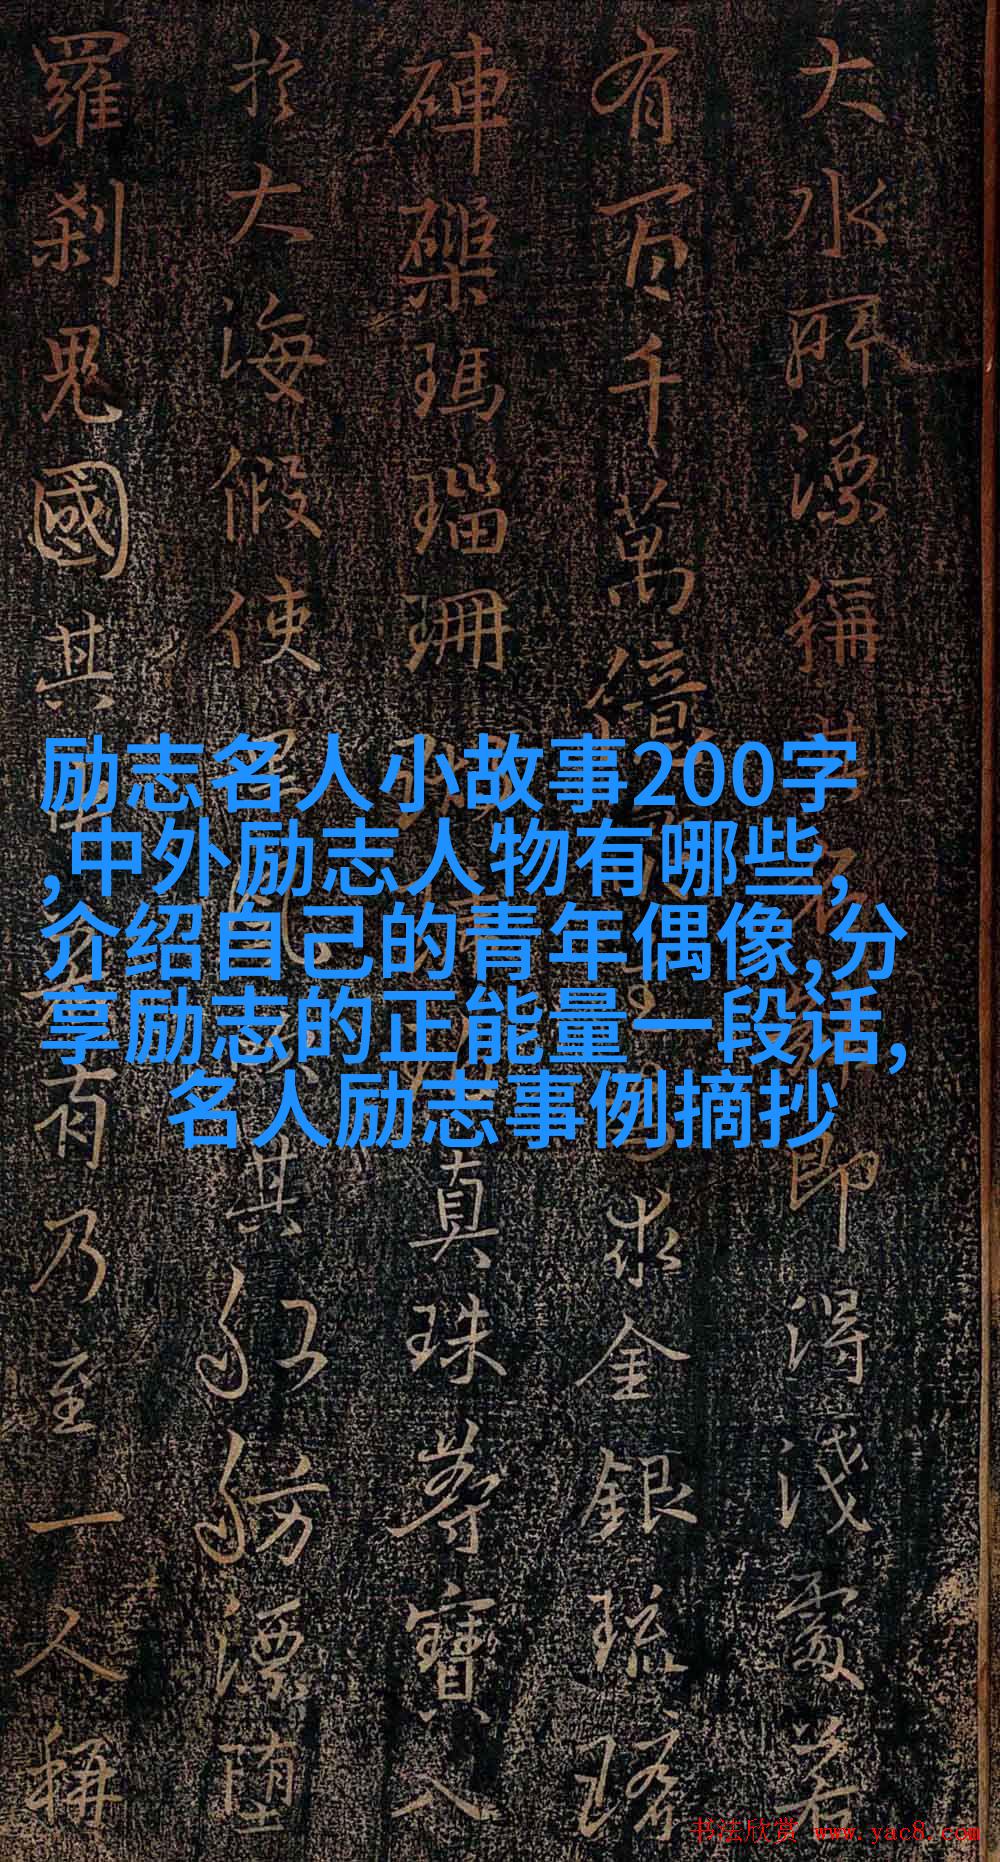 大水所漂稱其名號即得淺處若
有百千萬億求金銀琉璃
硨磲瑪瑙珊瑚真珠等寶入
於大海假使黑風吹其船舫漂墮
羅剎鬼國其中若有乃至一人稱
励志名人小故事200字
,中外励志人物有哪些,
介绍自己的青年偶像,分
享励志的正能量一段话,
名人励志事例摘抄
书法欣赏 www.yac8.com